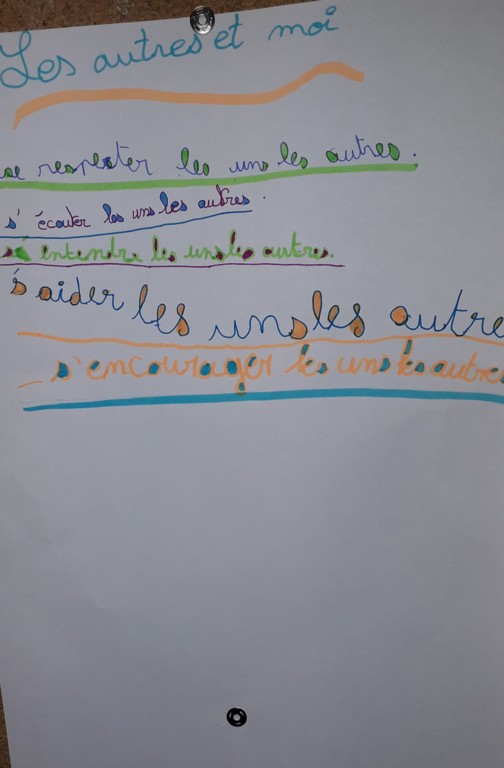 Les autres et moi
se respecter les uns les autres.
s'écouter les uns les autres.
s'entendre les uns les autres.
s'aider les uns les autre
_ s'encourager les uns les autres